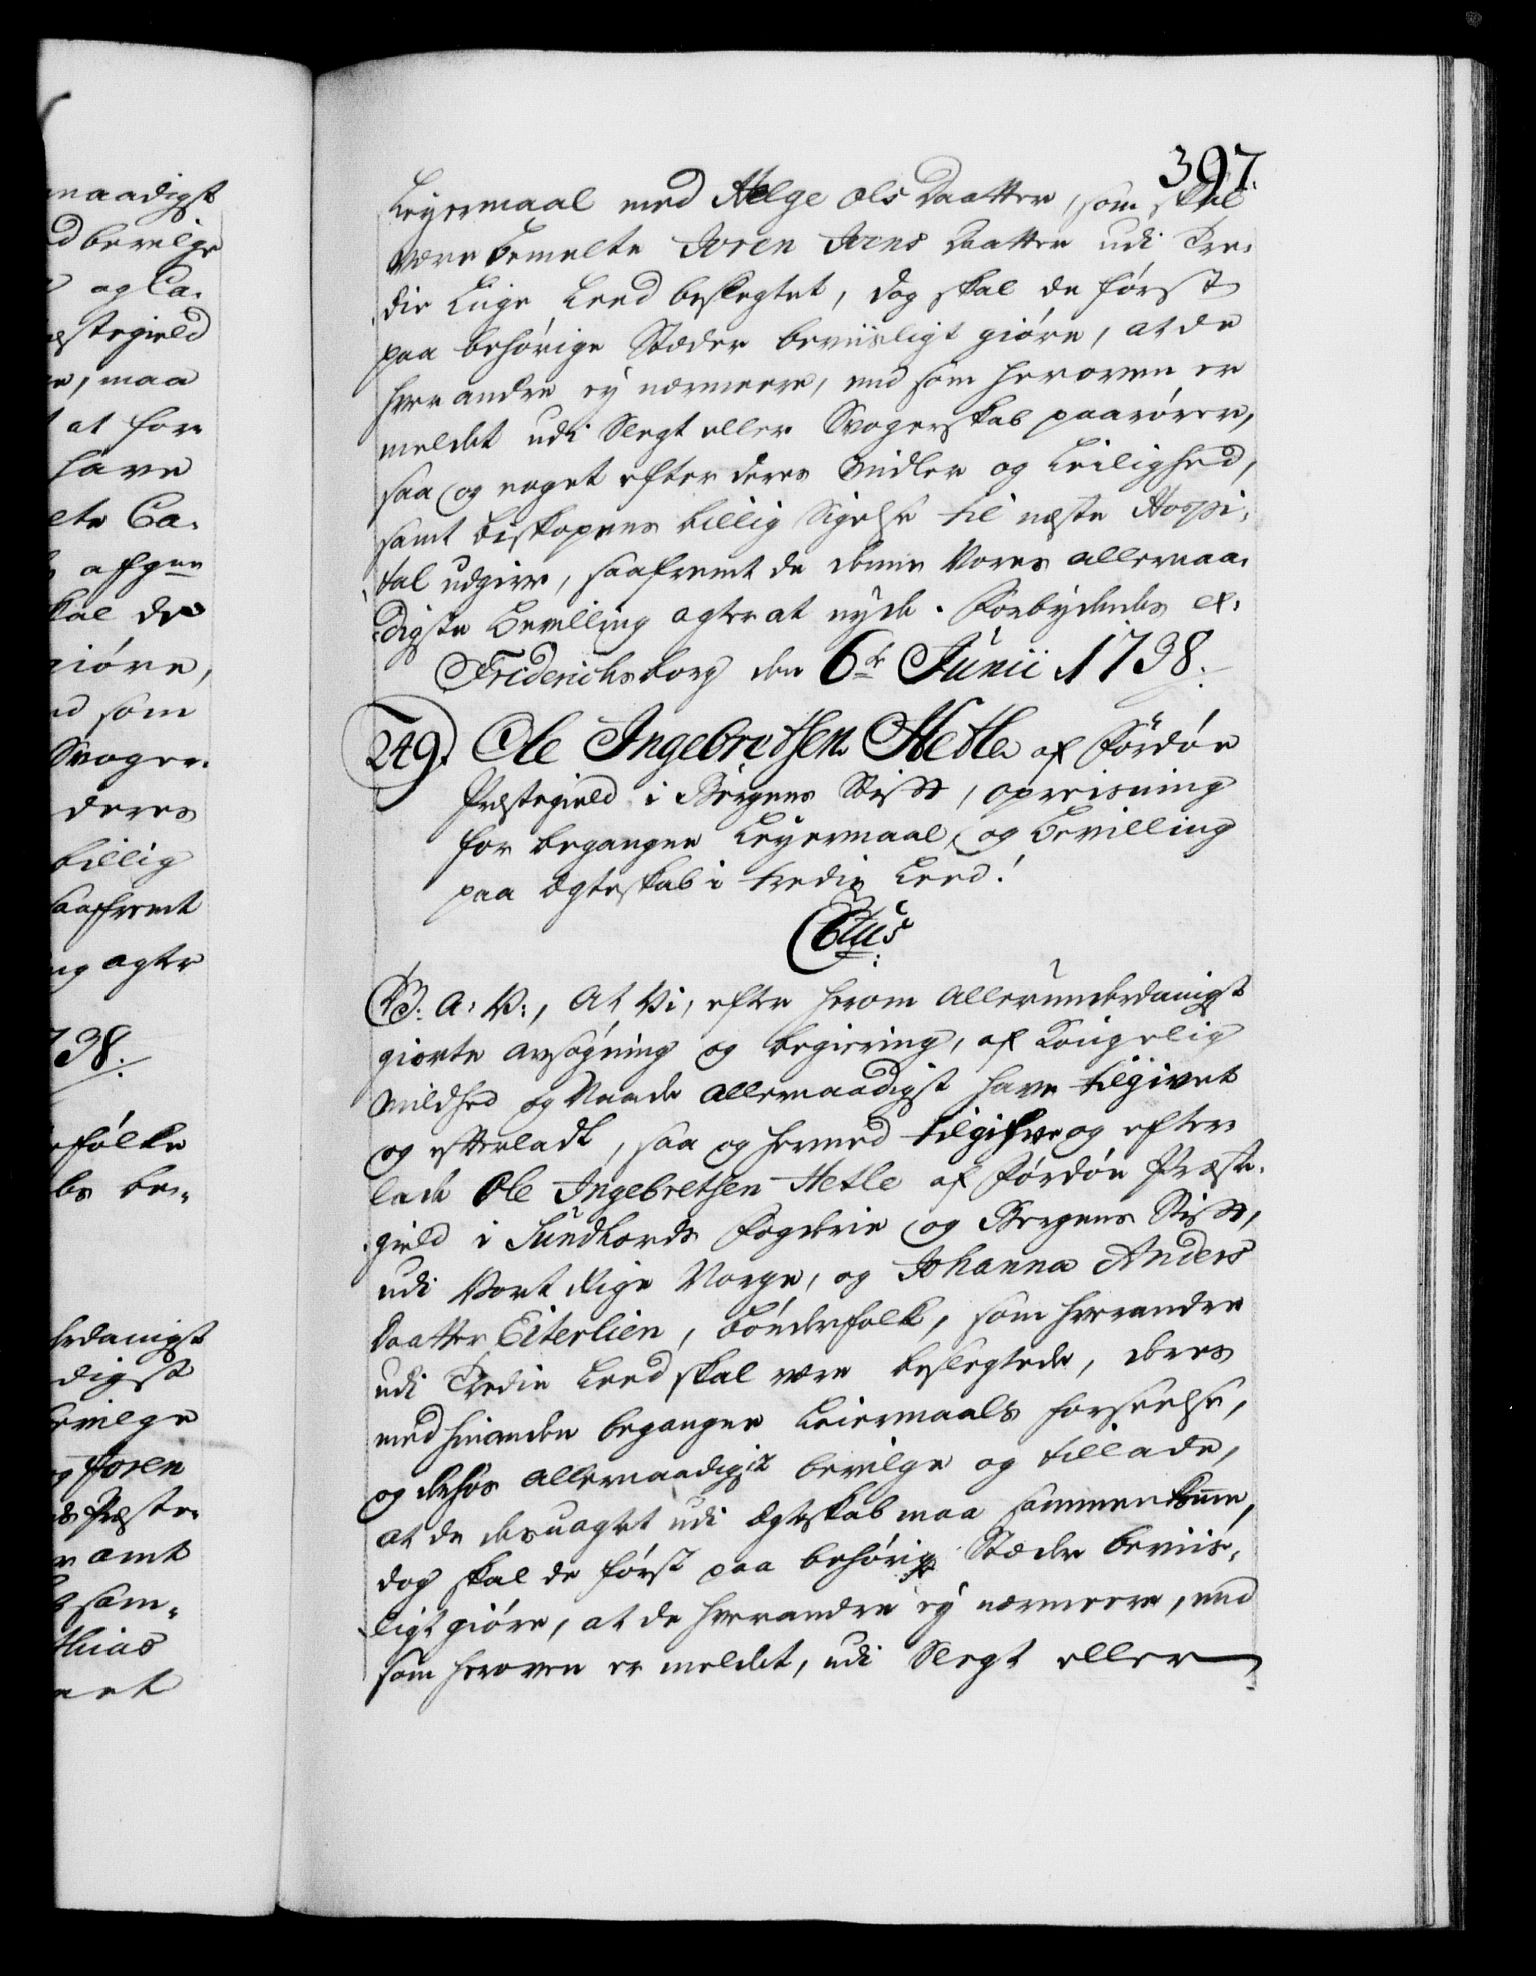 397.
Leyermaal med Helge Ols Daatter, som skal
være bemelte Joren Jens Daatter udi Tre-
die Liige Leed beslegtet, dog skal de først
paa behörige Stæder beviisligt giöre, at de
hver andre ey nærmere, end som heroven er
meldet udi Slegt eller Svogerskab paarörer,
saa og noget efter deres Midler og Leilighed,
samt Biskopens billig Sigelse til næste Hospi-
tal udgive, saafremt de denne Vores allernaa-
digste Bevilling agter at nyde. Forbydendes et.
Friderichsborg den 6te Junii 1738.
249. Ole Ingebretsen Hetle af Fördöe
Præstegield i Bergens Stift, opreisning
for begangen Leyermaal, og Bevilling
paa Ægteskab i tredie Leed.
C 6tus
G. A: V:, At Vi, efter herom allerunderdanigst
giorte ansögning og begiering, af Kongelig
Mildhed og Naade allernaadigst have tilgivet
og efterladt, saa og hermed tilgifve og efter
lade Ole Ingebretsen Hetle af Fördöe Præste-
gield i Sundhords Fogderie og Bergens Stift,
udi Vort Rige Norge, og Johanna Anders
Daatter Eiterlien, bönderfolk, som hverandre
udi Tredie Leed skal være beslegtede, deres
med hinanden begangne Leiermaals forseelse,
og dehos allernaadigst bevilge og tillade,
at de desuagtet udi Ægteskab maa sammenkome,
dog skal de först paa behörige Stæder beviis-
ligt giöre, at de hverandre ey nærmere, end
som heroven er meldet, udi Slegt eller